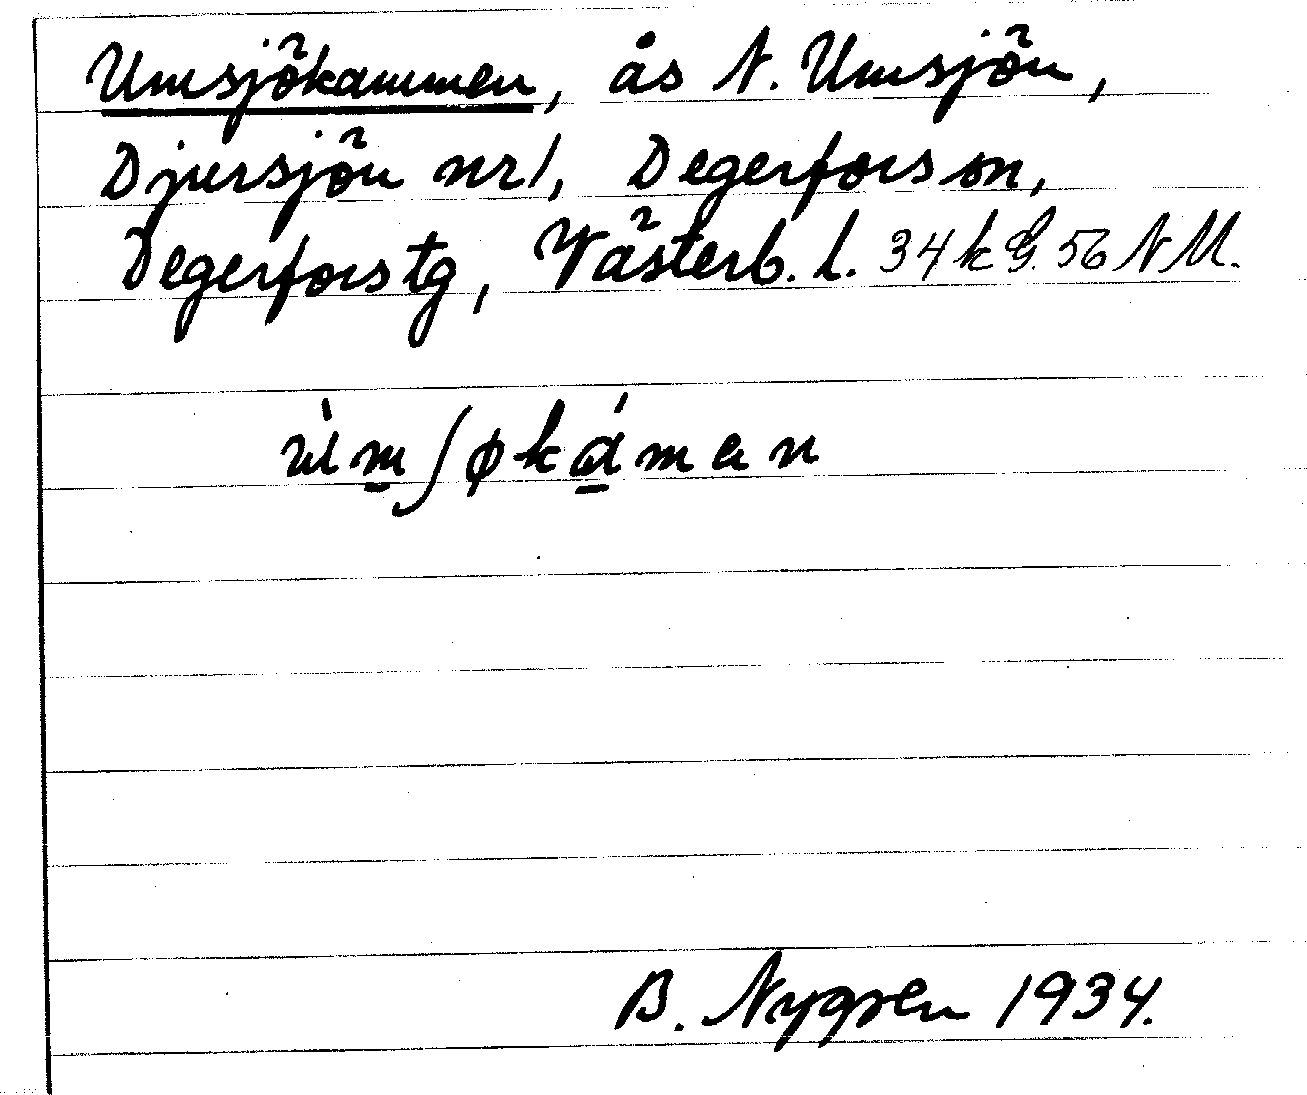 Umsjökammen, ås N. Umsjön,
Djursjön nr 1, Degerfors sn,
Degerfors tg, Västerb. l. 34 k G. 56 N M.
ùm̲ʃøká̲men
B. Nygren 1934.